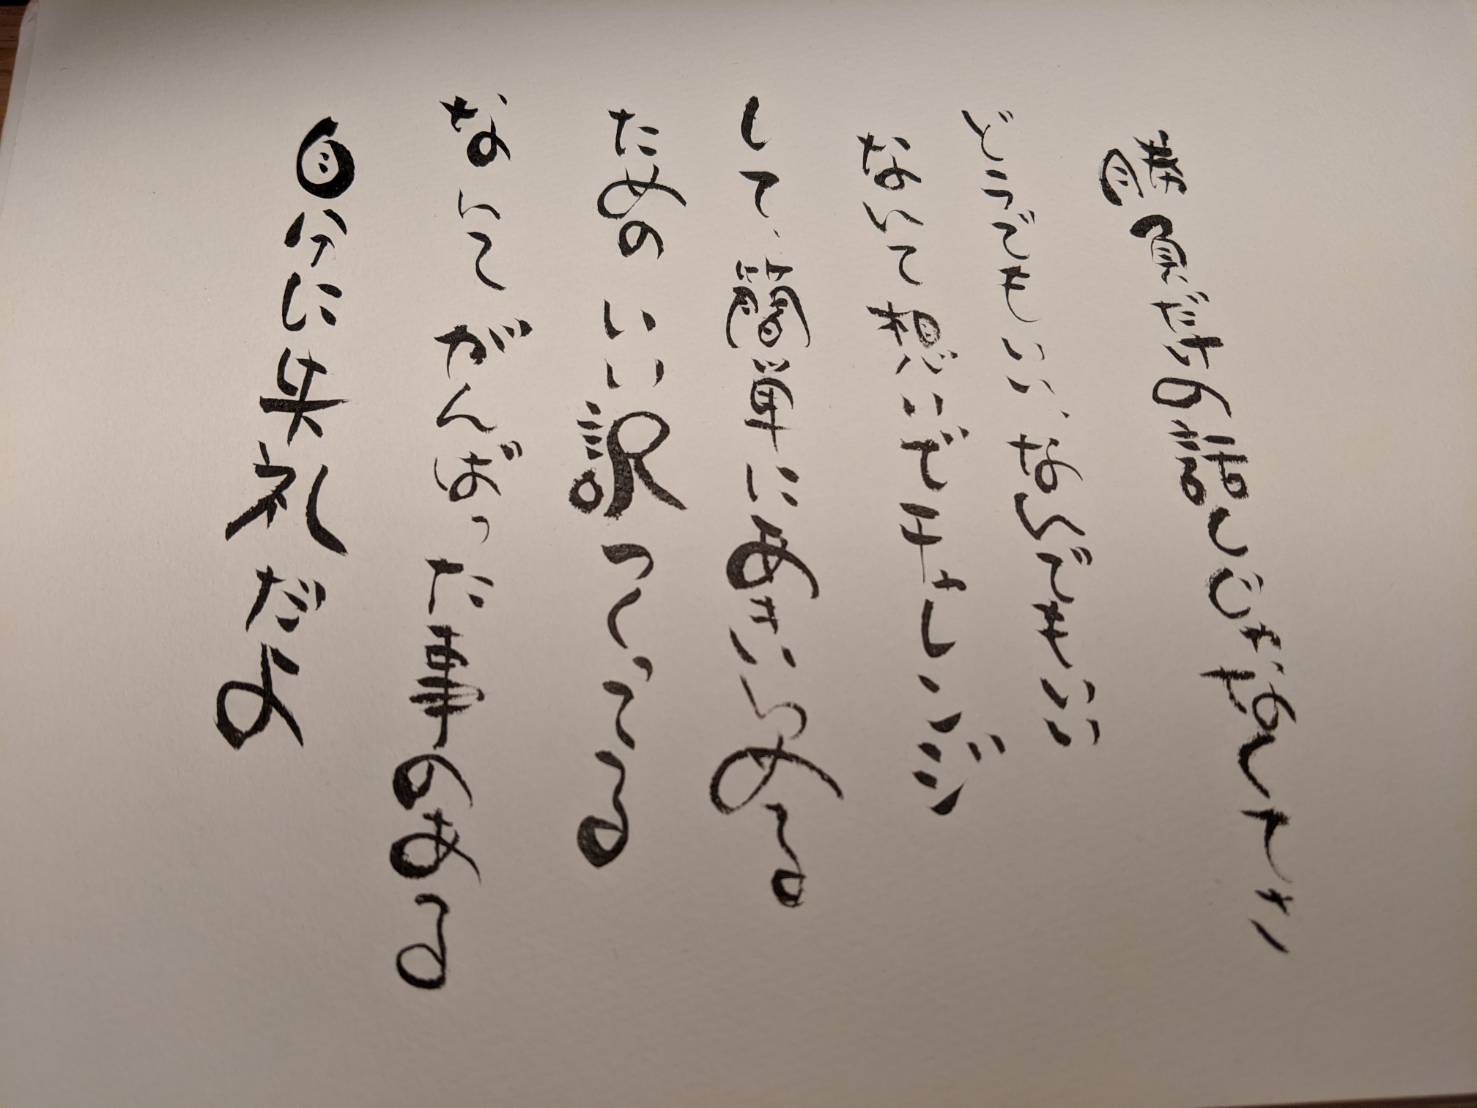 だけの話しじゃな
どうでもいい、なんでもいい
なんて想いでチャレンジ
して、簡単にあきらめる
ための いい訳つくってる
なんて がんばった事のある
自分に失礼だよ